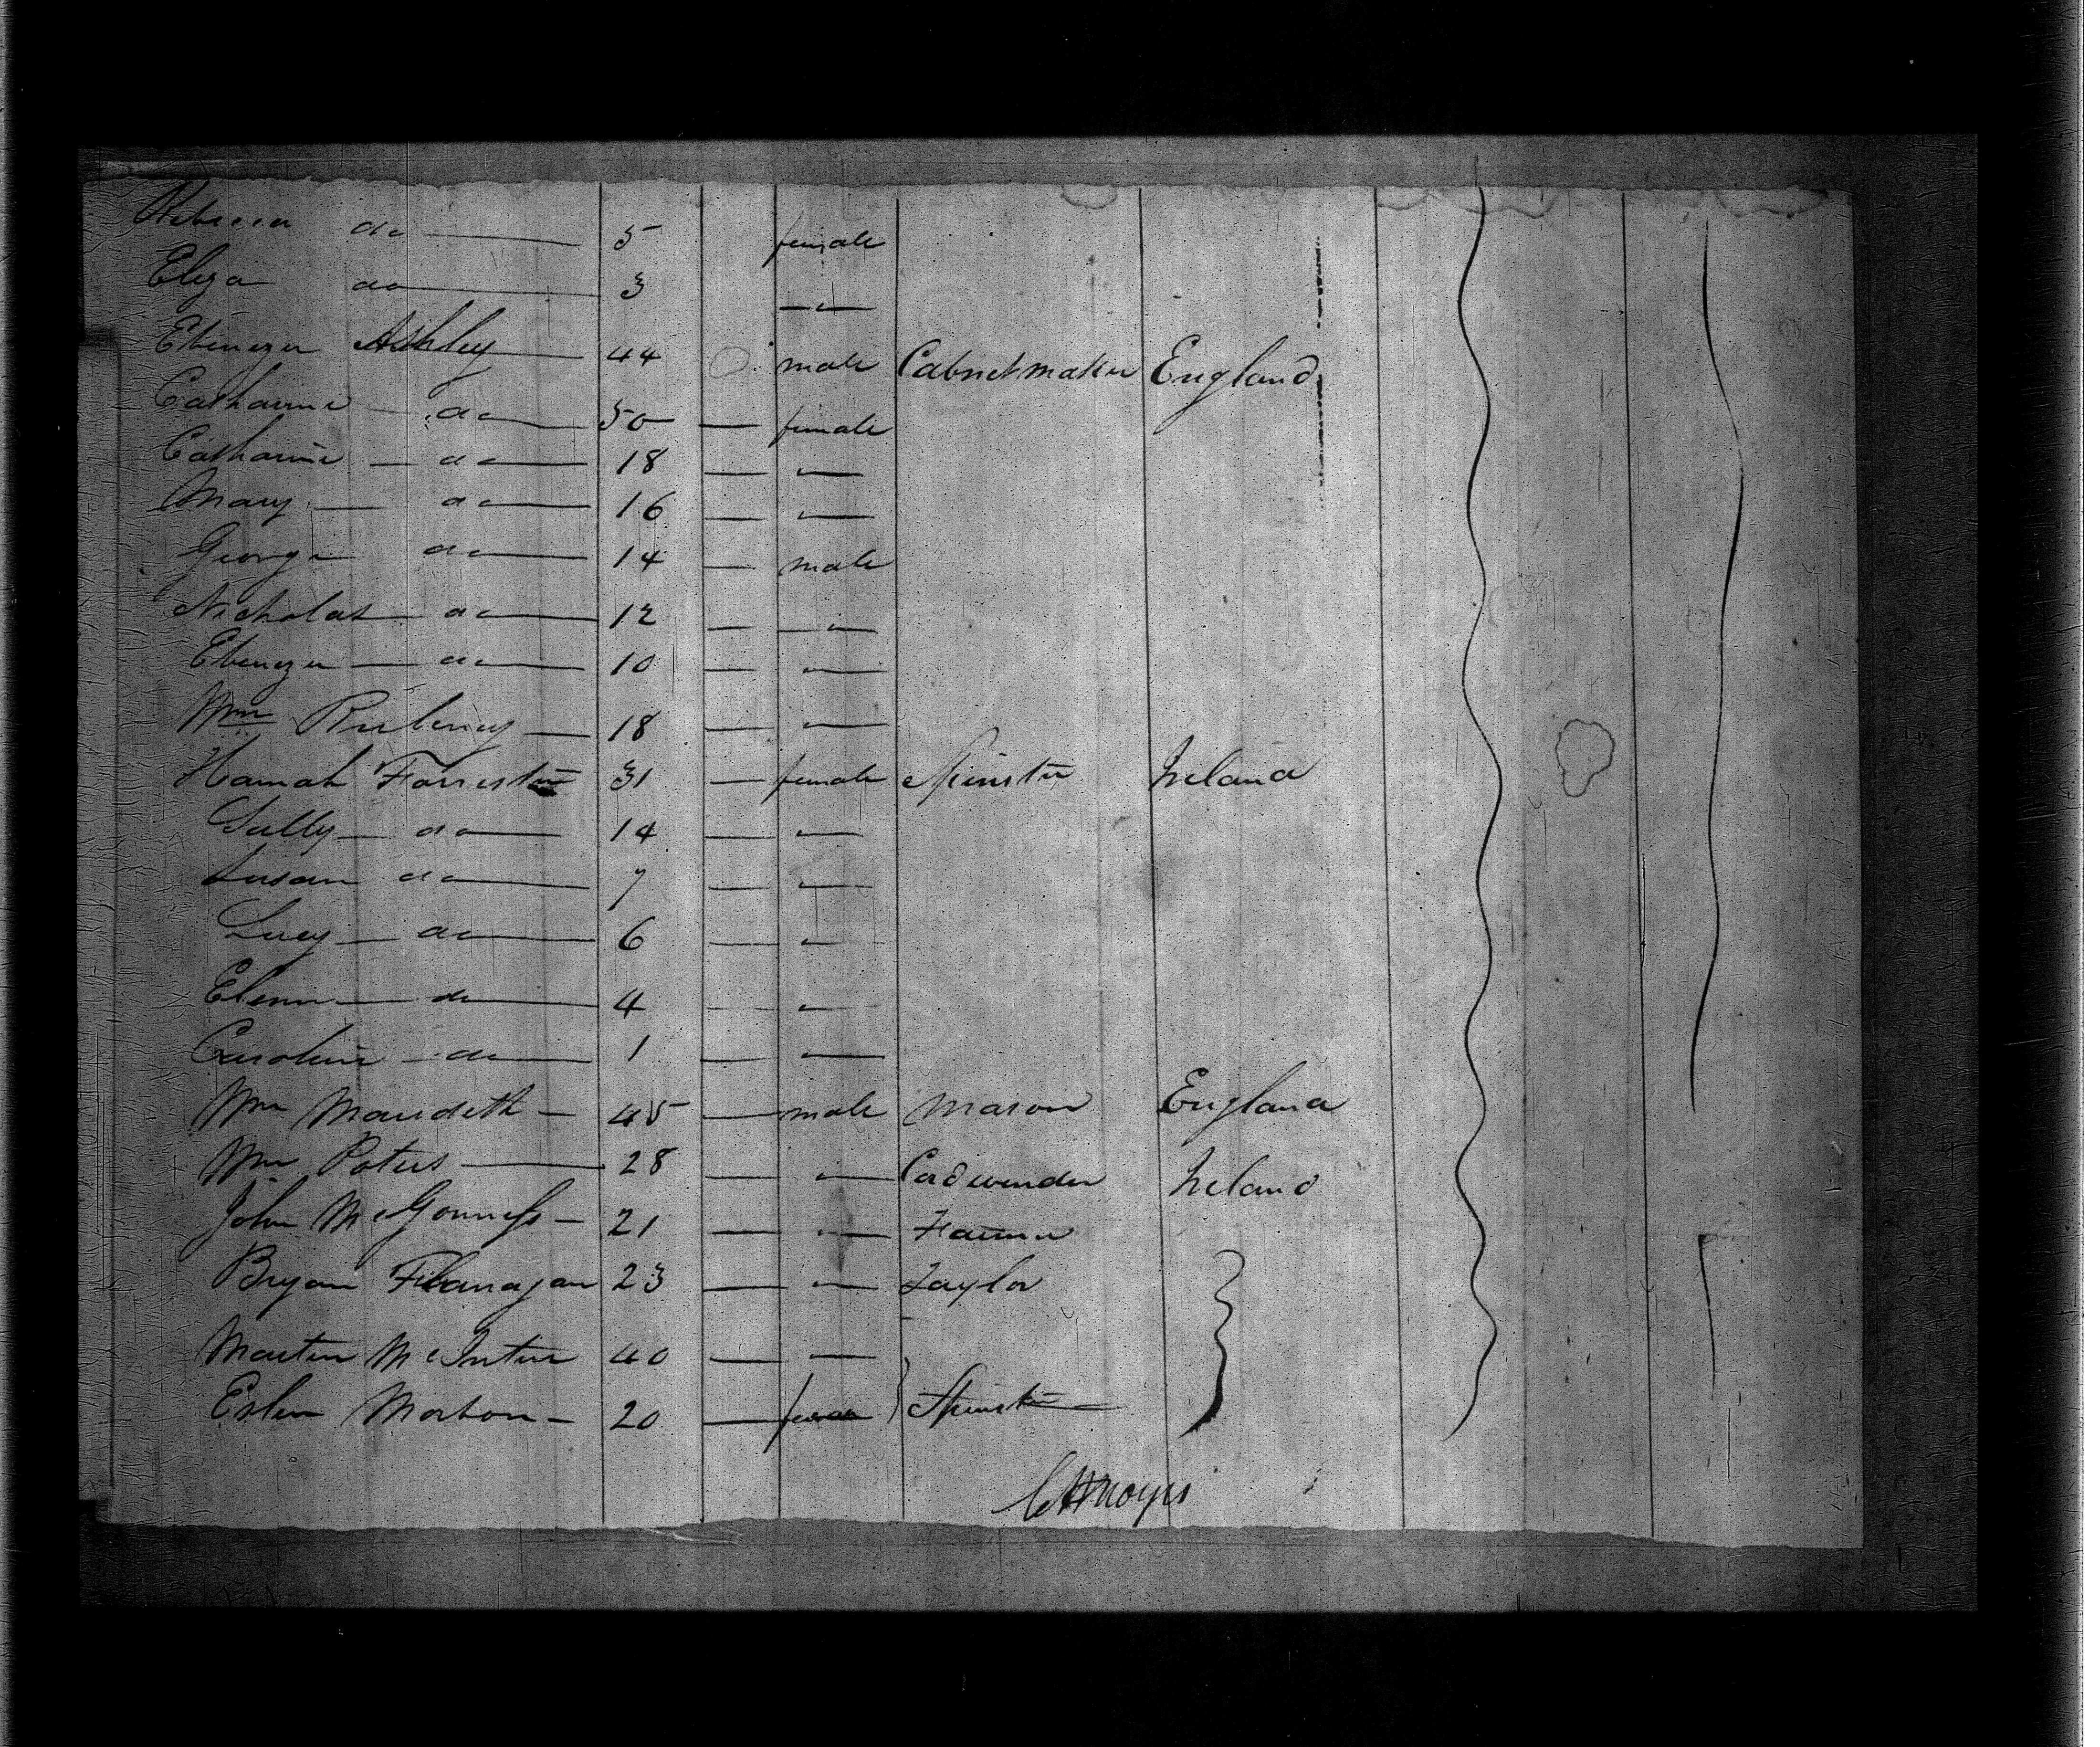 Rebecca do 5 female
Eliza do 3 — " —
Ebenezer Ashley 44 male Cabnetmaker England
Catharine do 50 — female
Catharine do 18 — " —
Mary do 16 — " —
George do 14 — male
Nicholas do 12 — " —
Ebenezer do 10 — " —
Wm 18 — " —
Hannah Forrester 31 — female Spinster Ireland
Sally do 14 — " —
Susan do 7 — " —
Lucy do 6 — " —
do 4 — " —
Caroline do 1 — " —
Wm 45 — male Mason England
Wm Peters 28 — " — Cordwinder Ireland
John 21 — " — Farmer
Bryan Flanagan 23 — " — Taylor
Martin McIntire 40 — " —
Morton 20 — female Spinster
Noyes